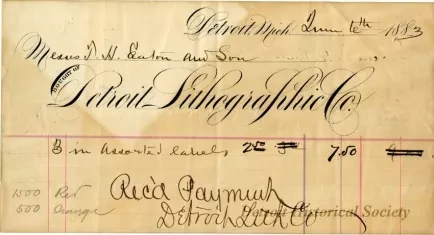 Detroit, Mich. June 6th 1883
Messrs T. H. Eaton and Son
BOUGHT OF
Detroit Lithographic Co.
3 in Assorted labels 2.50 7.50
1500 Red
500 Orange
Rec'd Payment
Detroit Lith Co
Detroit Historical Society